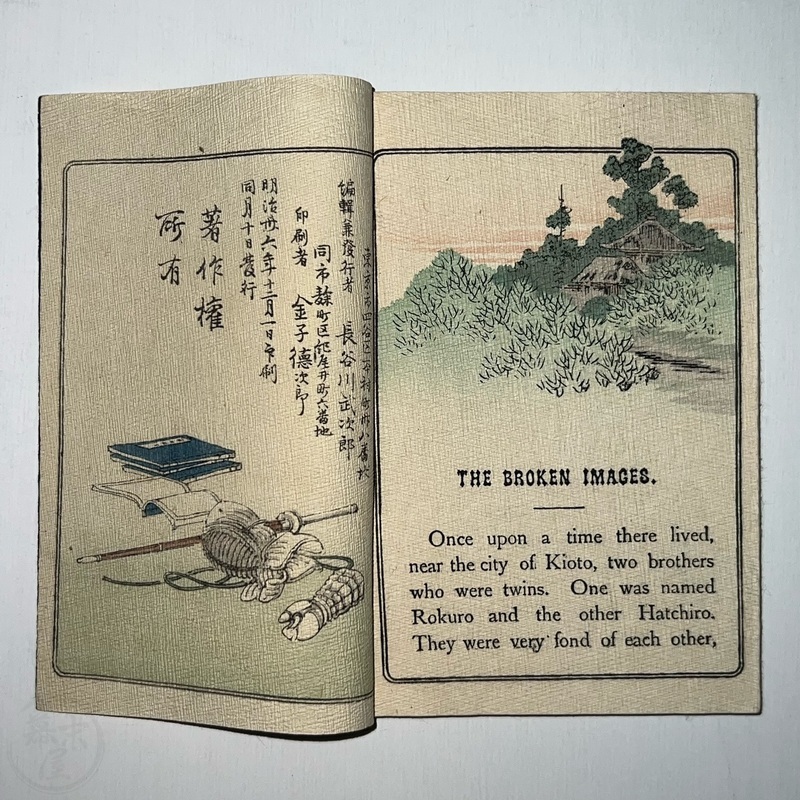 東京市四谷区本村町卅八番地
編輯兼發行者 長谷川武次郎
同市麹町区紀尾井町六番地
印刷者 金子德次郎
明治卅六年十二月一日印刷
同月十日發行
著作權
所有
THE BROKEN IMAGES.
Once upon a time there lived,
near the city of Kioto, two brothers
who were twins. One was named
Rokuro and the other Hatchiro.
They were very fond of each other,